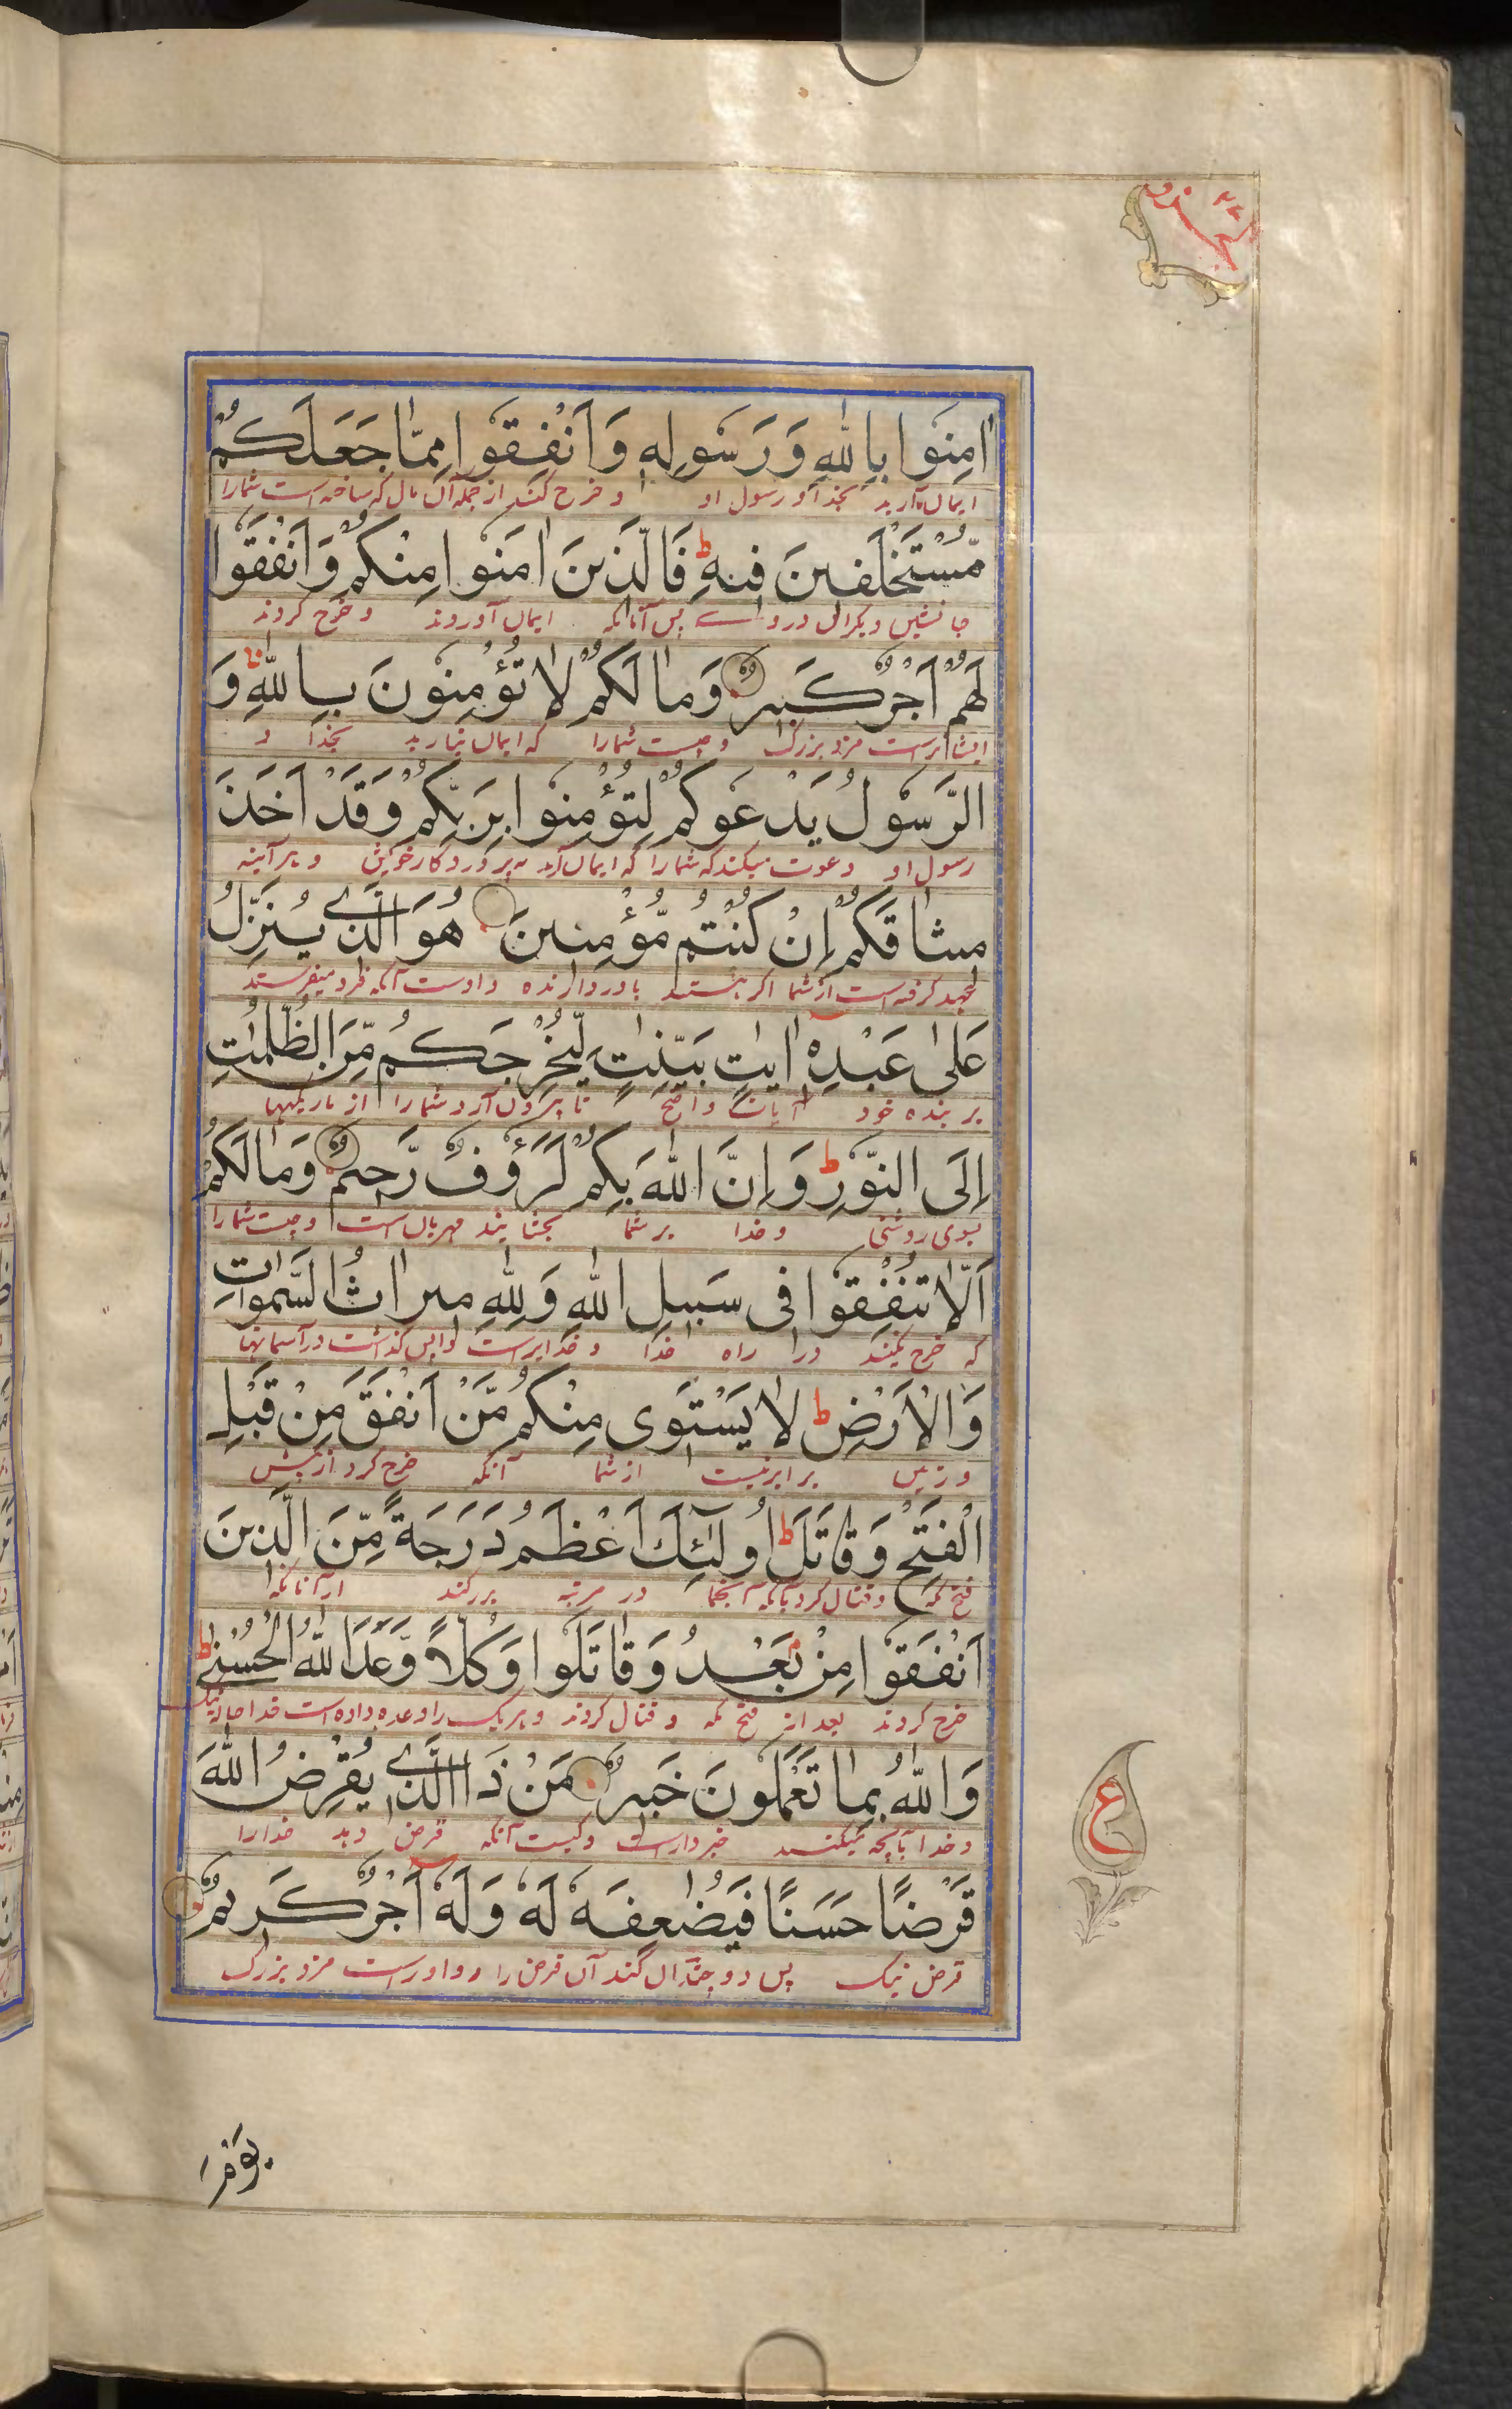 جزو ۲۷
اٰمِنُوا بِاللّٰهِ وَرَسُولِهٖ وَاَنْفِقُوا مِمَّا جَعَلَكُمْ
ایمان آرید بخدا و رسول او و خرج کنید از جمله آن مال که ساخته است شمارا
مُّسْتَخْلَفِينَ فِيهِ ط فَالَّذِينَ اٰمَنُوا مِنْكُمْ وَاَنْفَقُوا
جانشین دیگران در وے پس آنانکه ایمان آوردند و خرج کردند
لَهُمْ اَجْرٌ كَبِيرٌ وَمَا لَكُمْ لَا تُؤْمِنُونَ بِاللّٰهِ وَ
ایشانراست مزد بزرگ و چیست شمارا که ایمان نیارید بخدا و
الرَّسُولُ يَدْعُوكُمْ لِتُؤْمِنُوا بِرَبِّكُمْ وَقَدْ اَخَذَ
رسول او دعوت میکند که شمارا که ایمان آرید به پروردگار خویش و هر آینه
مِيثَاقَكُمْ اِنْ كُنْتُمْ مُّؤْمِنِينَ هُوَ الَّذِے يُنَزِّلُ
عهد گرفته است از شما اگر هستید باوردارنده و اوست آنکه فرو میفرستد
عَلٰى عَبْدِهٖ اٰيٰتٍ بَيِّنٰتٍ لِّيُخْرِجَكُمْ مِّنَ الظُّلُمٰتِ
بر بنده خود آیات واضح تا بیرون آرد شمارا از تاریکیها
اِلَى النُّوْرِ ط وَاِنَّ اللّٰهَ بِكُمْ لَرَؤُفٌ رَّحِيمٌ وَمَا لَكُمْ
بسوی روشنی و خدا بر شما بخشایند مهربان است و چیست شمارا
اَلَّا تُنْفِقُوا فِى سَبِيلِ اللّٰهِ وَلِلّٰهِ مِيرَاثُ السَّمٰوَاتِ
که خرج نمیکنید در راه خدا و خدایراست واپس گذاشت در آسمانها
وَالْاَرْضِ ط لَا يَسْتَوِى مِنْكُمْ مَّنْ اَنْفَقَ مِنْ قَبْلِ
و زمین برابر نیست از شما آنکه خرج کرد از پیش
الْفَتْحِ وَقَاتَلَ ط اُولٰٓئِكَ اَعْظَمُ دَرَجَةً مِّنَ الَّذِينَ
فتح مکه و قتال کرد در مرتبه بزرگند از آنانکه
اَنْفَقُوا مِنْ بَعْدُ وَقَاتَلُوا وَكُلًّا وَّعَدَ اللّٰهُ الْحُسْنٰے ط
خرج کردند بعد از فتح مکه و قتال کردند و هر یک را وعده داده است خدا حالت نیک
وَاللّٰهُ بِمَا تَعْمَلُونَ خَبِيرٌ مَنْ ذَا الَّذِے يُقْرِضُ اللّٰهَ
و خدا بآنچه میکنید خبردار است و کیست آنکه قرض دهد خدا را
ع
قَرْضًا حَسَنًا فَيُضٰعِفَهٗ لَهٗ وَلَهٗٓ اَجْرٌ كَرِيمٌ
قرض نیک پس دو چندان کند آن قرض را و او راست مزد بزرگ
يَوْمَ